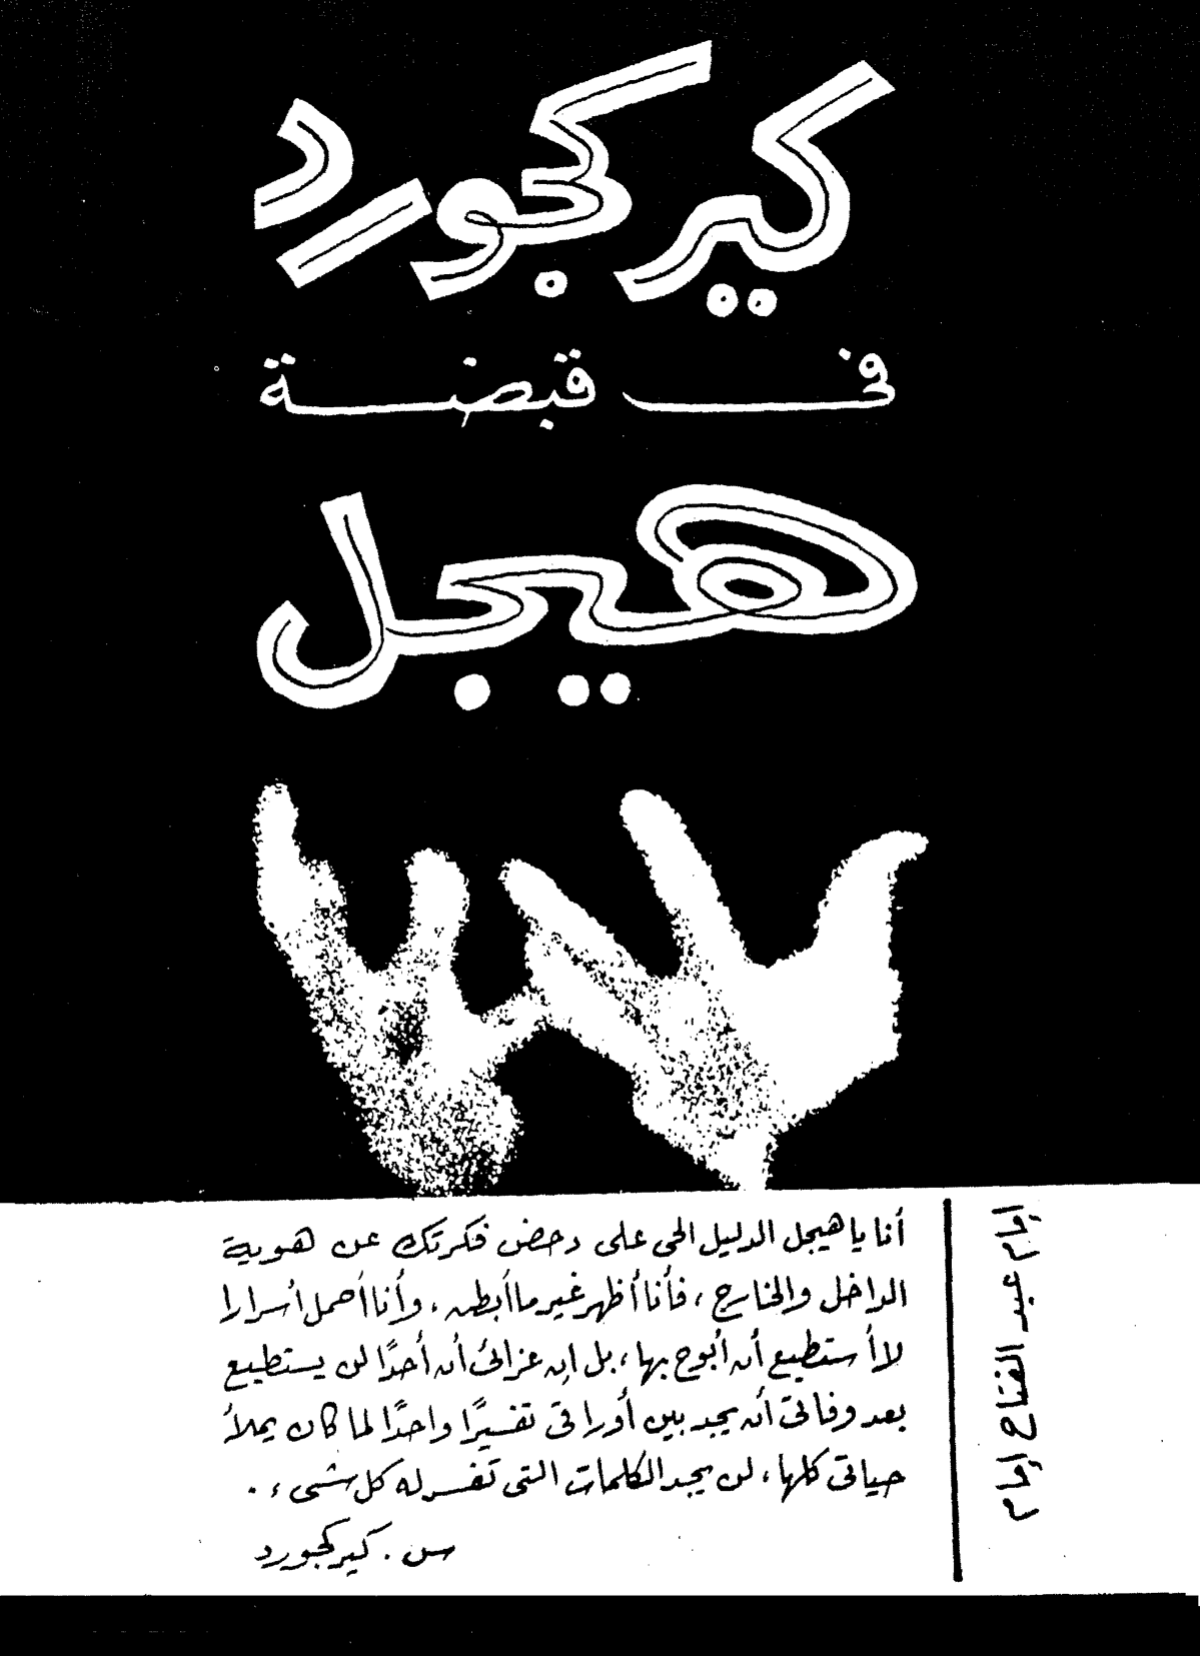 كيركجورد
فى قبضة
هيجل
أنا يا هيجل الدليل الحى على دحض فكرتك عن هوية
الداخل والخارج ، فأنا أظهر غير ما أبطن ، وأنا أحمل أسرارا
لا أستطيع أن أبوح بها ، بل إن عزائى أن أحدًا لن يستطيع
بعد وفاتى أن يجد بين أوراقى تفسيرًا واحدًا لما كان يملأ
حياتى كلها ، لن يجد الكلمات التى تفسر له كل شىء .
س . كيركجورد
إمام عبد الفتاح إمام